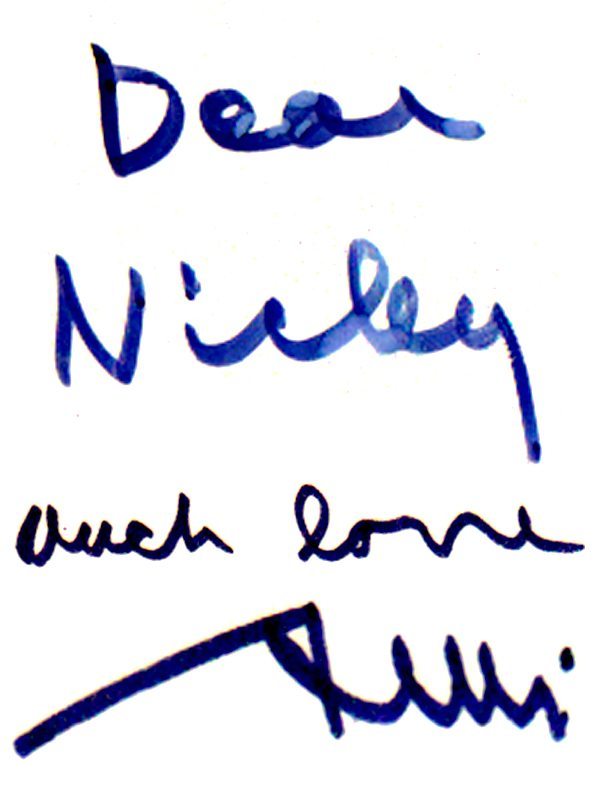 Dear
Nicky
much love